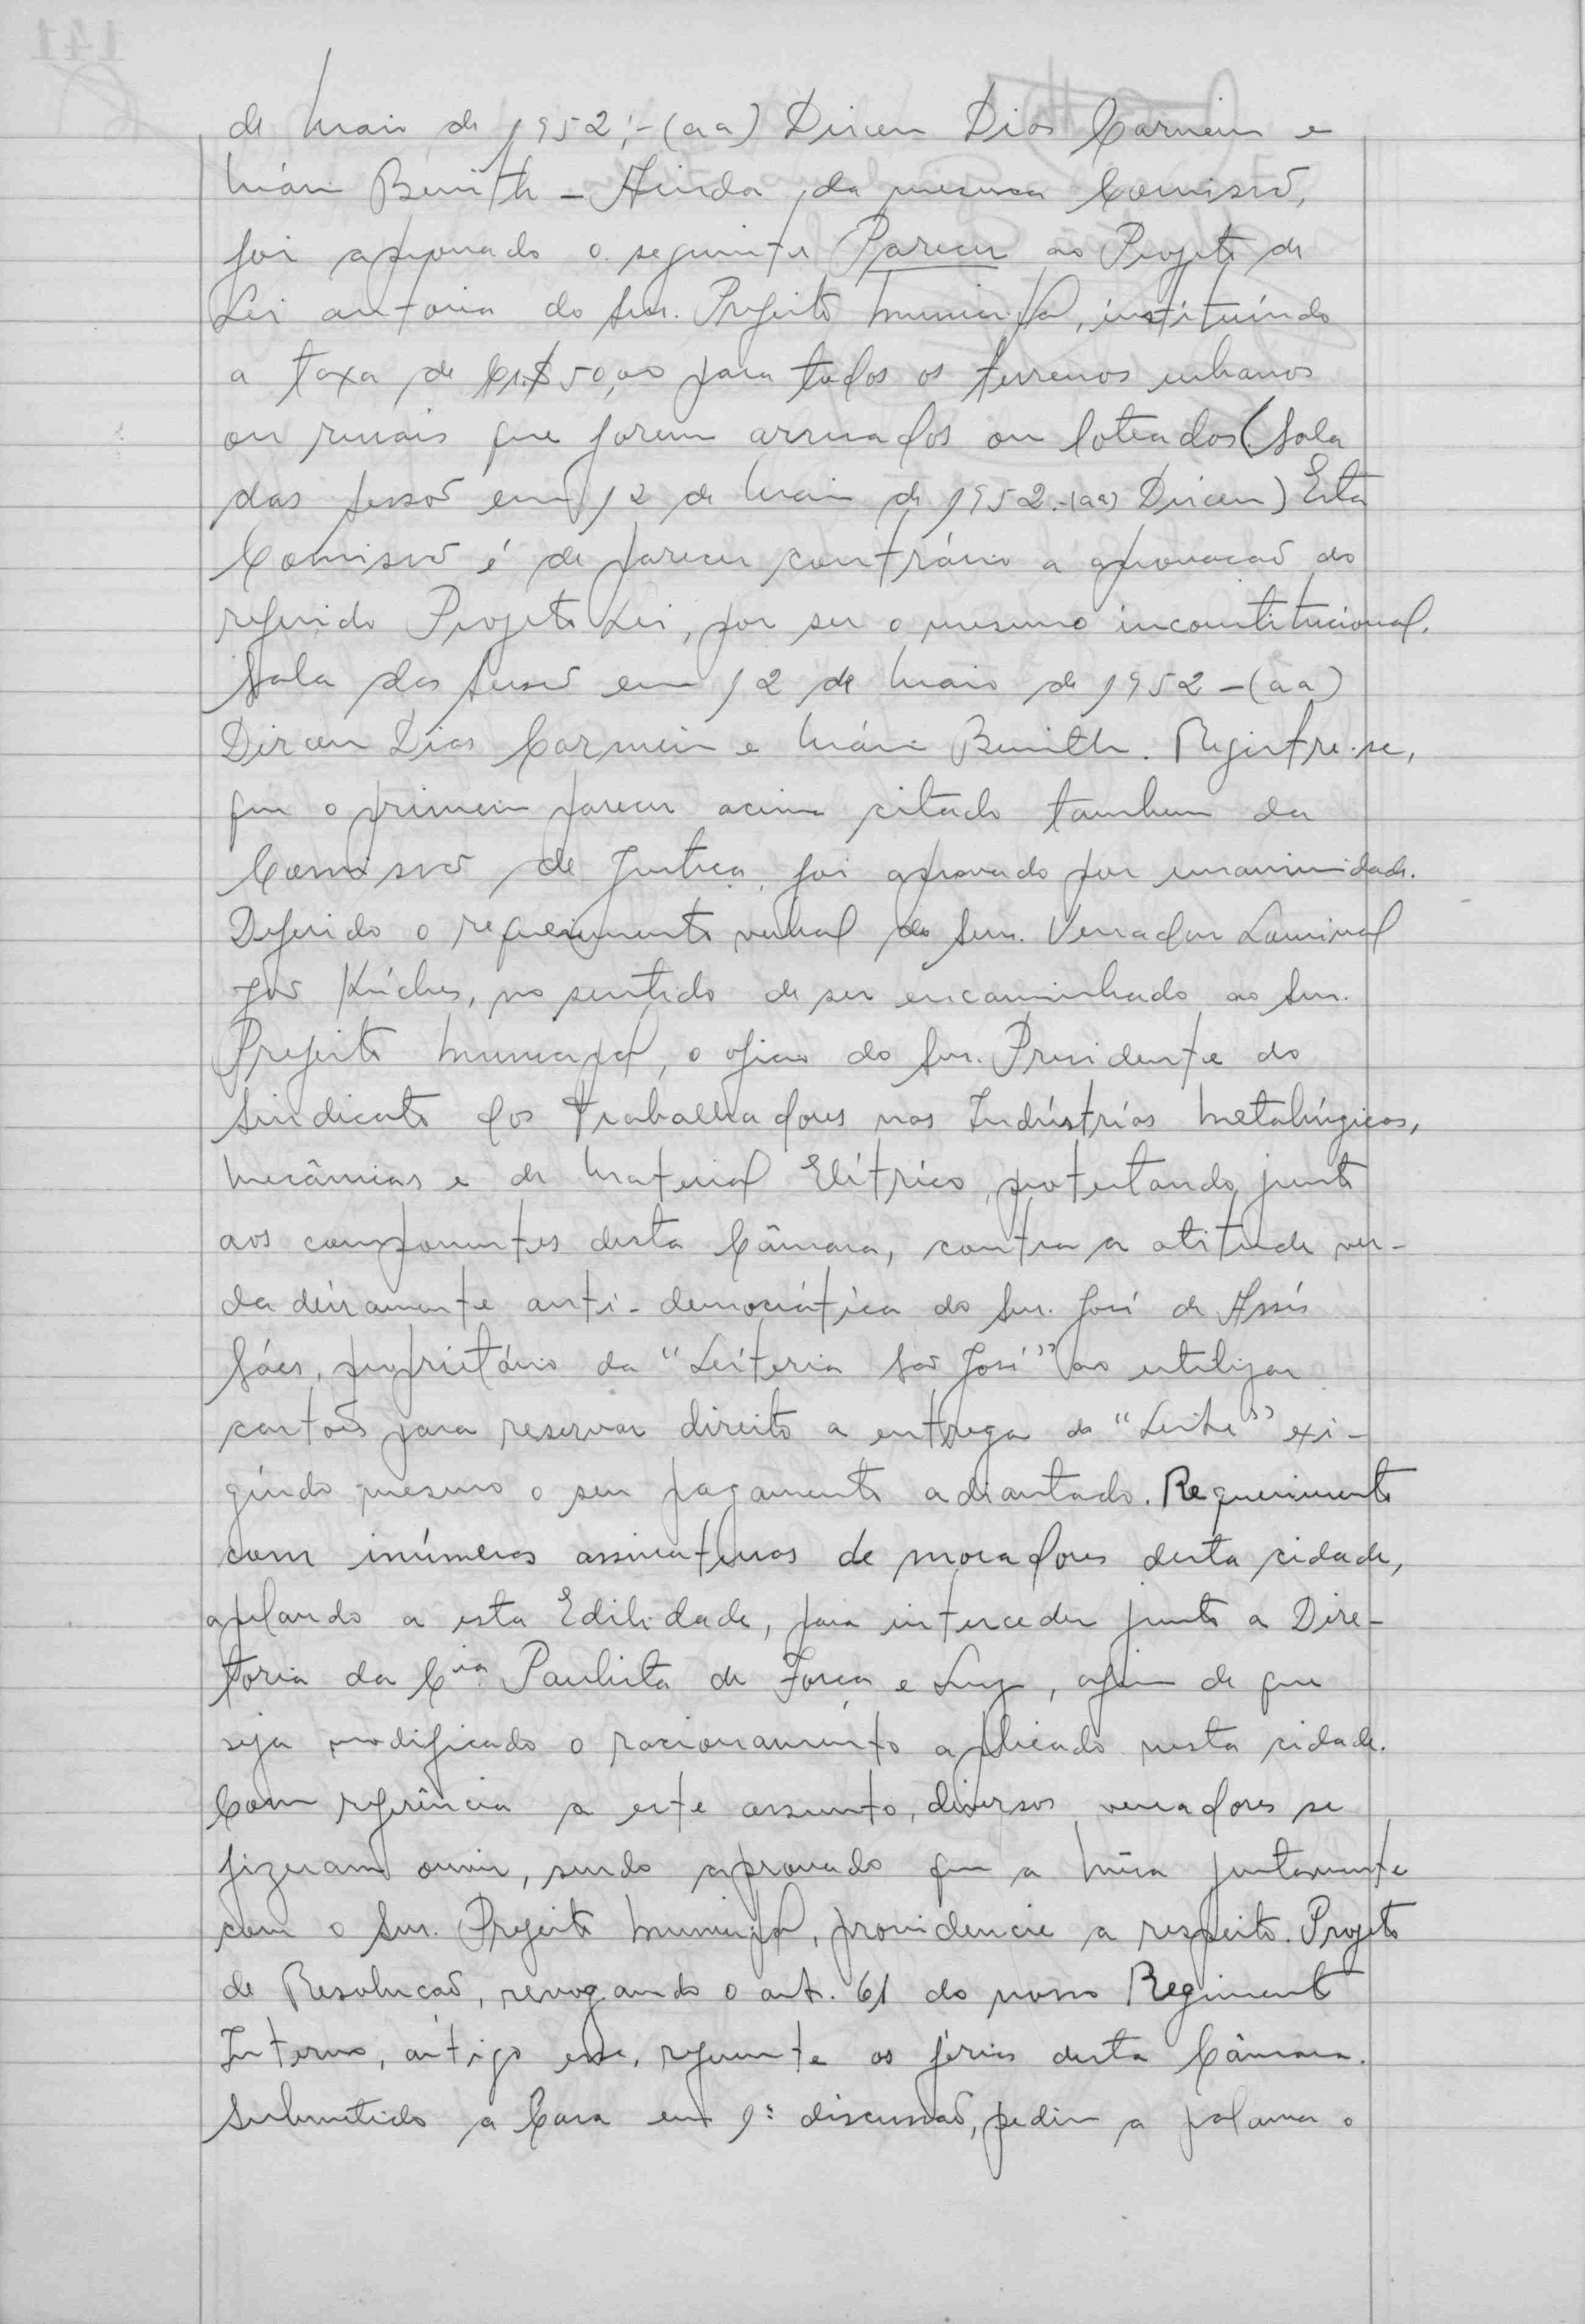 de Maio de 1952;-(aa) Dirceu Dias Carneiro e
Mário Benith - Ainda, da mesma Comissão,
foi aprovado o seguinte Parecer ao Projeto de
Lei autoria do Snr. Prefeito Municipal, instituindo
a taxa de Cr.$ 50,00 para todos os terrenos urbanos
ou rurais que forem arruados ou loteados. (Sala
das Sessoẽs em 12 de Maio de 1952.-(aa) Dirceu) Esta
Comissão é de parecer contrário a aprovacaõ do
referido Projeto Lei, por ser o mesmo inconstitucional.
Sala das Sessoẽs em 12 de Maio de 1952 -(aa)
Dirceu Dias Carneiro e Mário Benith. Registre-se,
que o primeiro parecer acima citado tambem da
Comissão de Justica, foi aprovado por unanimidade.
Deferido o requerimento verbal do Snr. Vereador Lourival
no sentido de ser encaminhado ao Snr.
Prefeito Municipal, o oficio do Snr. Presidente do
Sindicato dos Trabalhadores nas Indústrias Metalúrgicas,
Mecânicas e de Material Elétrico, protestando, junto
aos componentes desta Câmara, contra a atitude ver-
dadeiramente anti-democrática do Snr. José de Assis
Sáes, proprietário da "Leiteria Saõ José" ao utilizar
cartoẽs para reservar direito a entrega do "Leite" exi-
gindo mesmo o seu pagamento adiantado. Requerimento
com inúmeras assinaturas de moradores desta cidade,
apelando a esta Edilidade, para interceder junto a Dire-
toria da Cia Paulista de Forca e Luz, afim de que
seja modificado o racionamento aplicado nesta cidade.
Com referência a este assunto, diversos vereadores se
fizeram ouvir, sendo aprovado que a Mêsa juntamente
com o Snr. Prefeito Municipal, providencie a respeito. Projeto
de Resolucaõ, revogando o art. 61 do nosso Regimento
Interno, artigo esse, referente as férias desta Câmara.
Submetido a Casa em 1ª discussaõ, pediu a palavra o